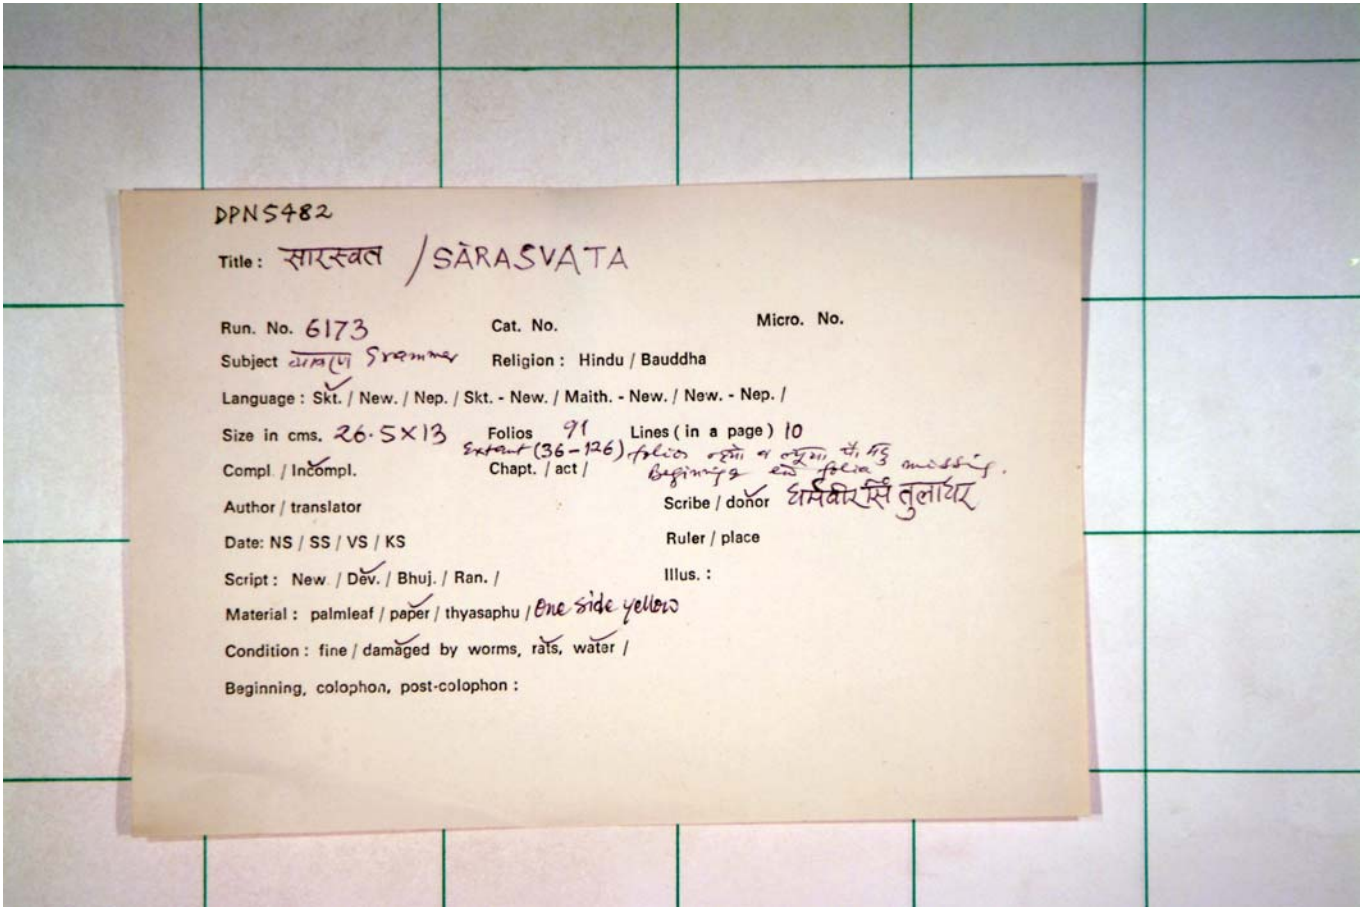 DPN5482
Title : सारस्वत / SĀRASVATA
Run. No. 6173 Cat. No. Micro. No.
Subject व्याकरण Grammer Religion : Hindu / Bauddha
Language : Skt. / New. / Nep. / Skt. - New. / Maith. - New. / New. - Nep. /
Size in cms. 26.5×13 Folios 91 Lines ( in a page ) 10
Extant (36–126) folios
Compl. / Incompl. Chapt. / act / Beginning & end folia missing.
Author / translator Scribe / donor धर्मवीर सिं तुलाधर
Date: NS / SS / VS / KS Ruler / place
Script : New. / Dev. / Bhuj. / Ran. / Illus. :
Material : palmleaf / paper / thyasaphu / One side yellow
Condition : fine / damaged by worms, rats, water /
Beginning, colophon, post-colophon :